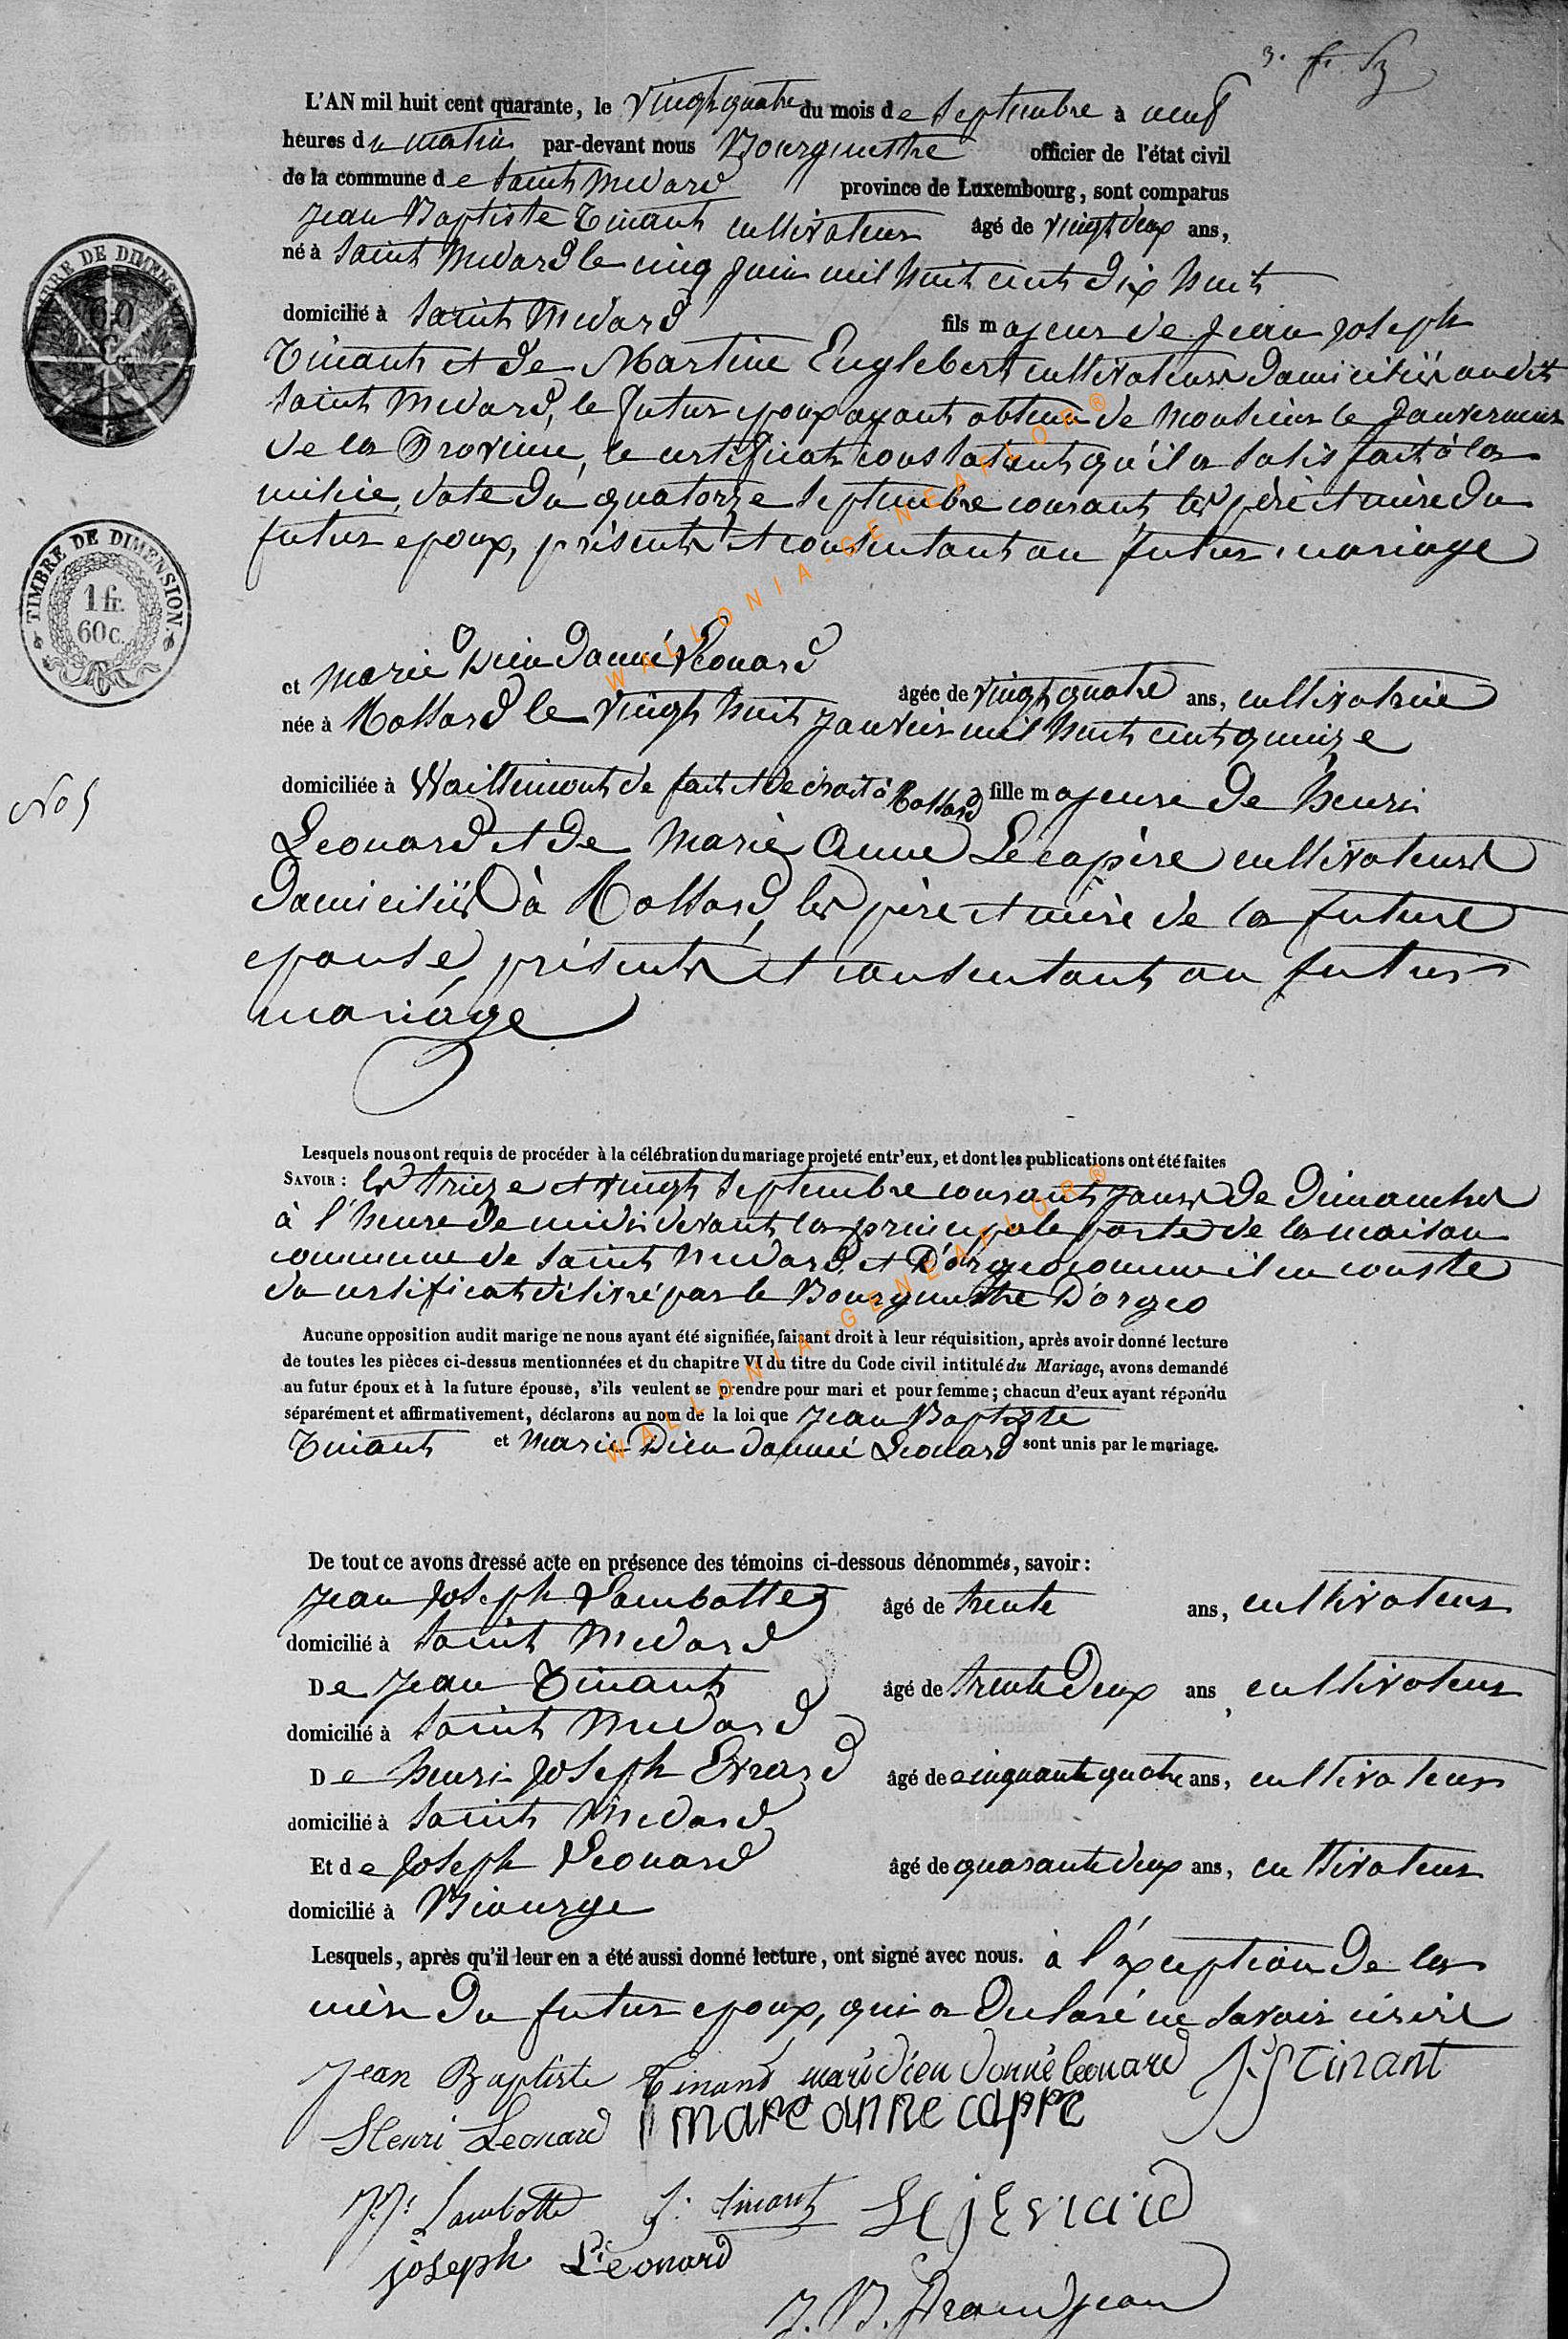 3. fr. 53
L'AN mil huit cent quarante, le Vingt quatre du mois de Septembre à neuf
heures du matin par-devant nous Bourgmestre officier de l'état civil
de la commune de Saint Medard province de Luxembourg, sont comparus
Jean Baptiste Tinant cultivateur âgé de vingt deux ans,
né à Saint Medard le cinq Juin mil huit cent dix huit
domicilié à Saint Medard fils majeur de Jean Joseph
Tinant et de Martine Englebert cultivateurs domiciliés audit
Saint Medard, le futur epoux ayant obtenu de Monsieur le Gouverneur
de la Province, le certificat constatant qu'il a satisfait à la
milice, date du quatorze Septembre courant, les père et mère du
futur epoux, présents et consentant au futur mariage
et Marie Dieu donné Leonard
âgée de vingt quatre ans, cultivatrice
née à Rossard le vingt huit Janvier mil huit cent quinze
domiciliée à Waillimont de fait et de droit à Rossard fille majeure de henri
Leonard et de Marie Anne Lécapère cultivateurs
domiciliés à Rossard, les père et mère de la future
epouse, présents et consentant au futur
mariage
No 5
Lesquels nous ont requis de procéder à la célébration du mariage projeté entr'eux, et dont les publications ont été faites
SAVOIR : les treize et vingt Septembre courant jours de Dimanches
à l'heure de midi devant la principale porte de la maison
commune de Saint Medard, et D'orgeo comme il en conste
du certificat délivré par le Bourgmestre D'orgeo
Aucune opposition audit marige ne nous ayant été signifiée, faisant droit à leur réquisition, après avoir donné lecture
de toutes les pièces ci-dessus mentionnées et du chapitre VI du titre du Code civil intitulé du Mariage, avons demandé
au futur époux et à la future épouse, s'ils veulent se prendre pour mari et pour femme ; chacun d'eux ayant répondu
séparément et affirmativement, déclarons au nom de la loi que Jean Baptiste
Tinant et Marie Dieu donné Leonard sont unis par le mariage.
De tout ce avons dressé acte en présence des témoins ci-dessous dénommés, savoir :
Jean Joseph Lambotte âgé de trente ans, cultivateur
domicilié à Saint Medard
De Jean Tinant âgé de trente Deux ans, cultivateur
domicilié à Saint Medard
De henri Joseph Evrard âgé de cinquante quatre ans, cultivateur
domicilié à Saint Medard
Et de Joseph Leonard âgé de quarante deux ans, cultivateur
domicilié à Biourge
Lesquels, après qu'il leur en a été aussi donné lecture, ont signé avec nous. à l'exception de la
mère du futur epoux, qui a déclaré ne savoir écrire
Jean Baptiste Tinant marie dieu donné leonard J. J tinant
Henri Leonard marie anne cappe
J. J. Lambotte J. tinant H j Evrard
joseph Léonard
J. B. Grandjean
TIMBRE DE DIMENSION
1 fr.
60 c.
WALLONIA-GENEAFLOR®
WALLONIA-GENEAFLOR®